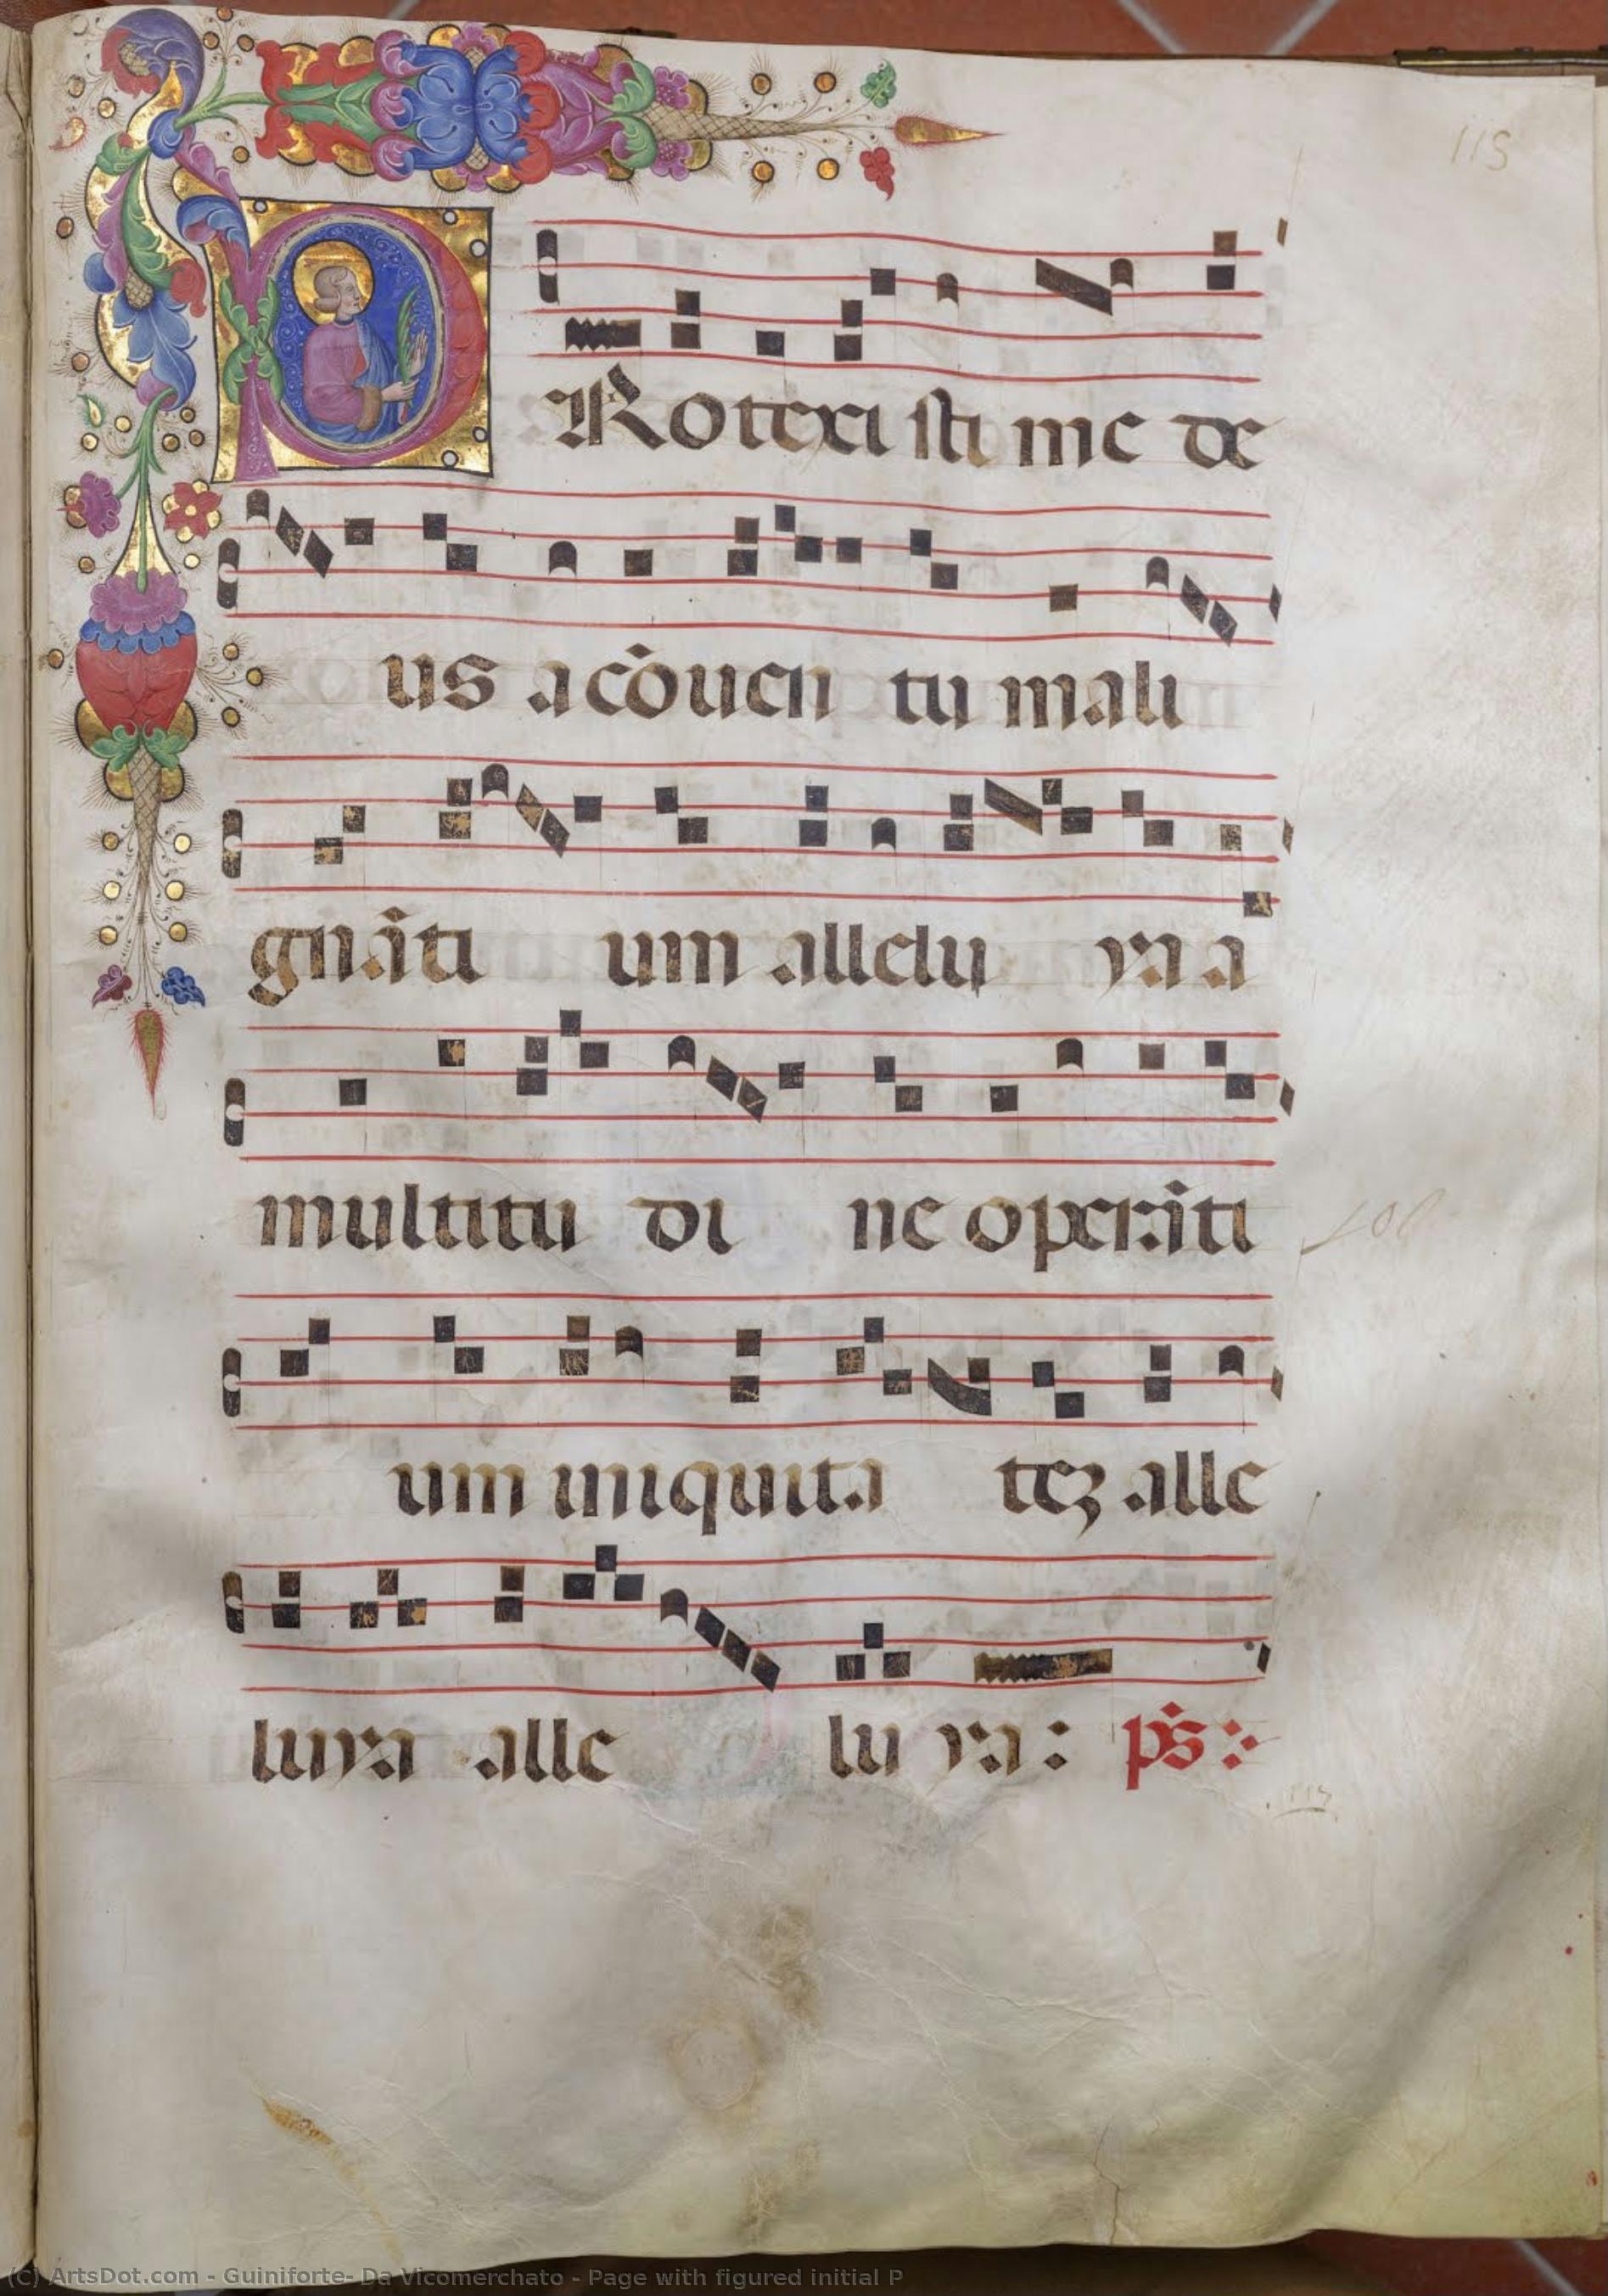 115
PRotexisti me de
us a cōuen tu mali
gnāti um allelu ya a
multitu di ne operāti
108
um iniquita tez alle
luya alle lu ya : ps :
115
(C) ArtsDot.com - Guiniforte- Da Vicomerchato - Page with figured initial P